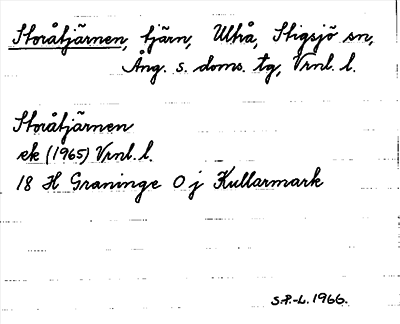 Storåtjärnen, tjärn, Ultrå, Stigsjö sn,
Ång. s. doms. tg, Vrnl. l.
Storåtjärnen
ek (1965) Vrnl. l.
18 H Graninge 0 j Kullarmark
S.P.-L. 1966.